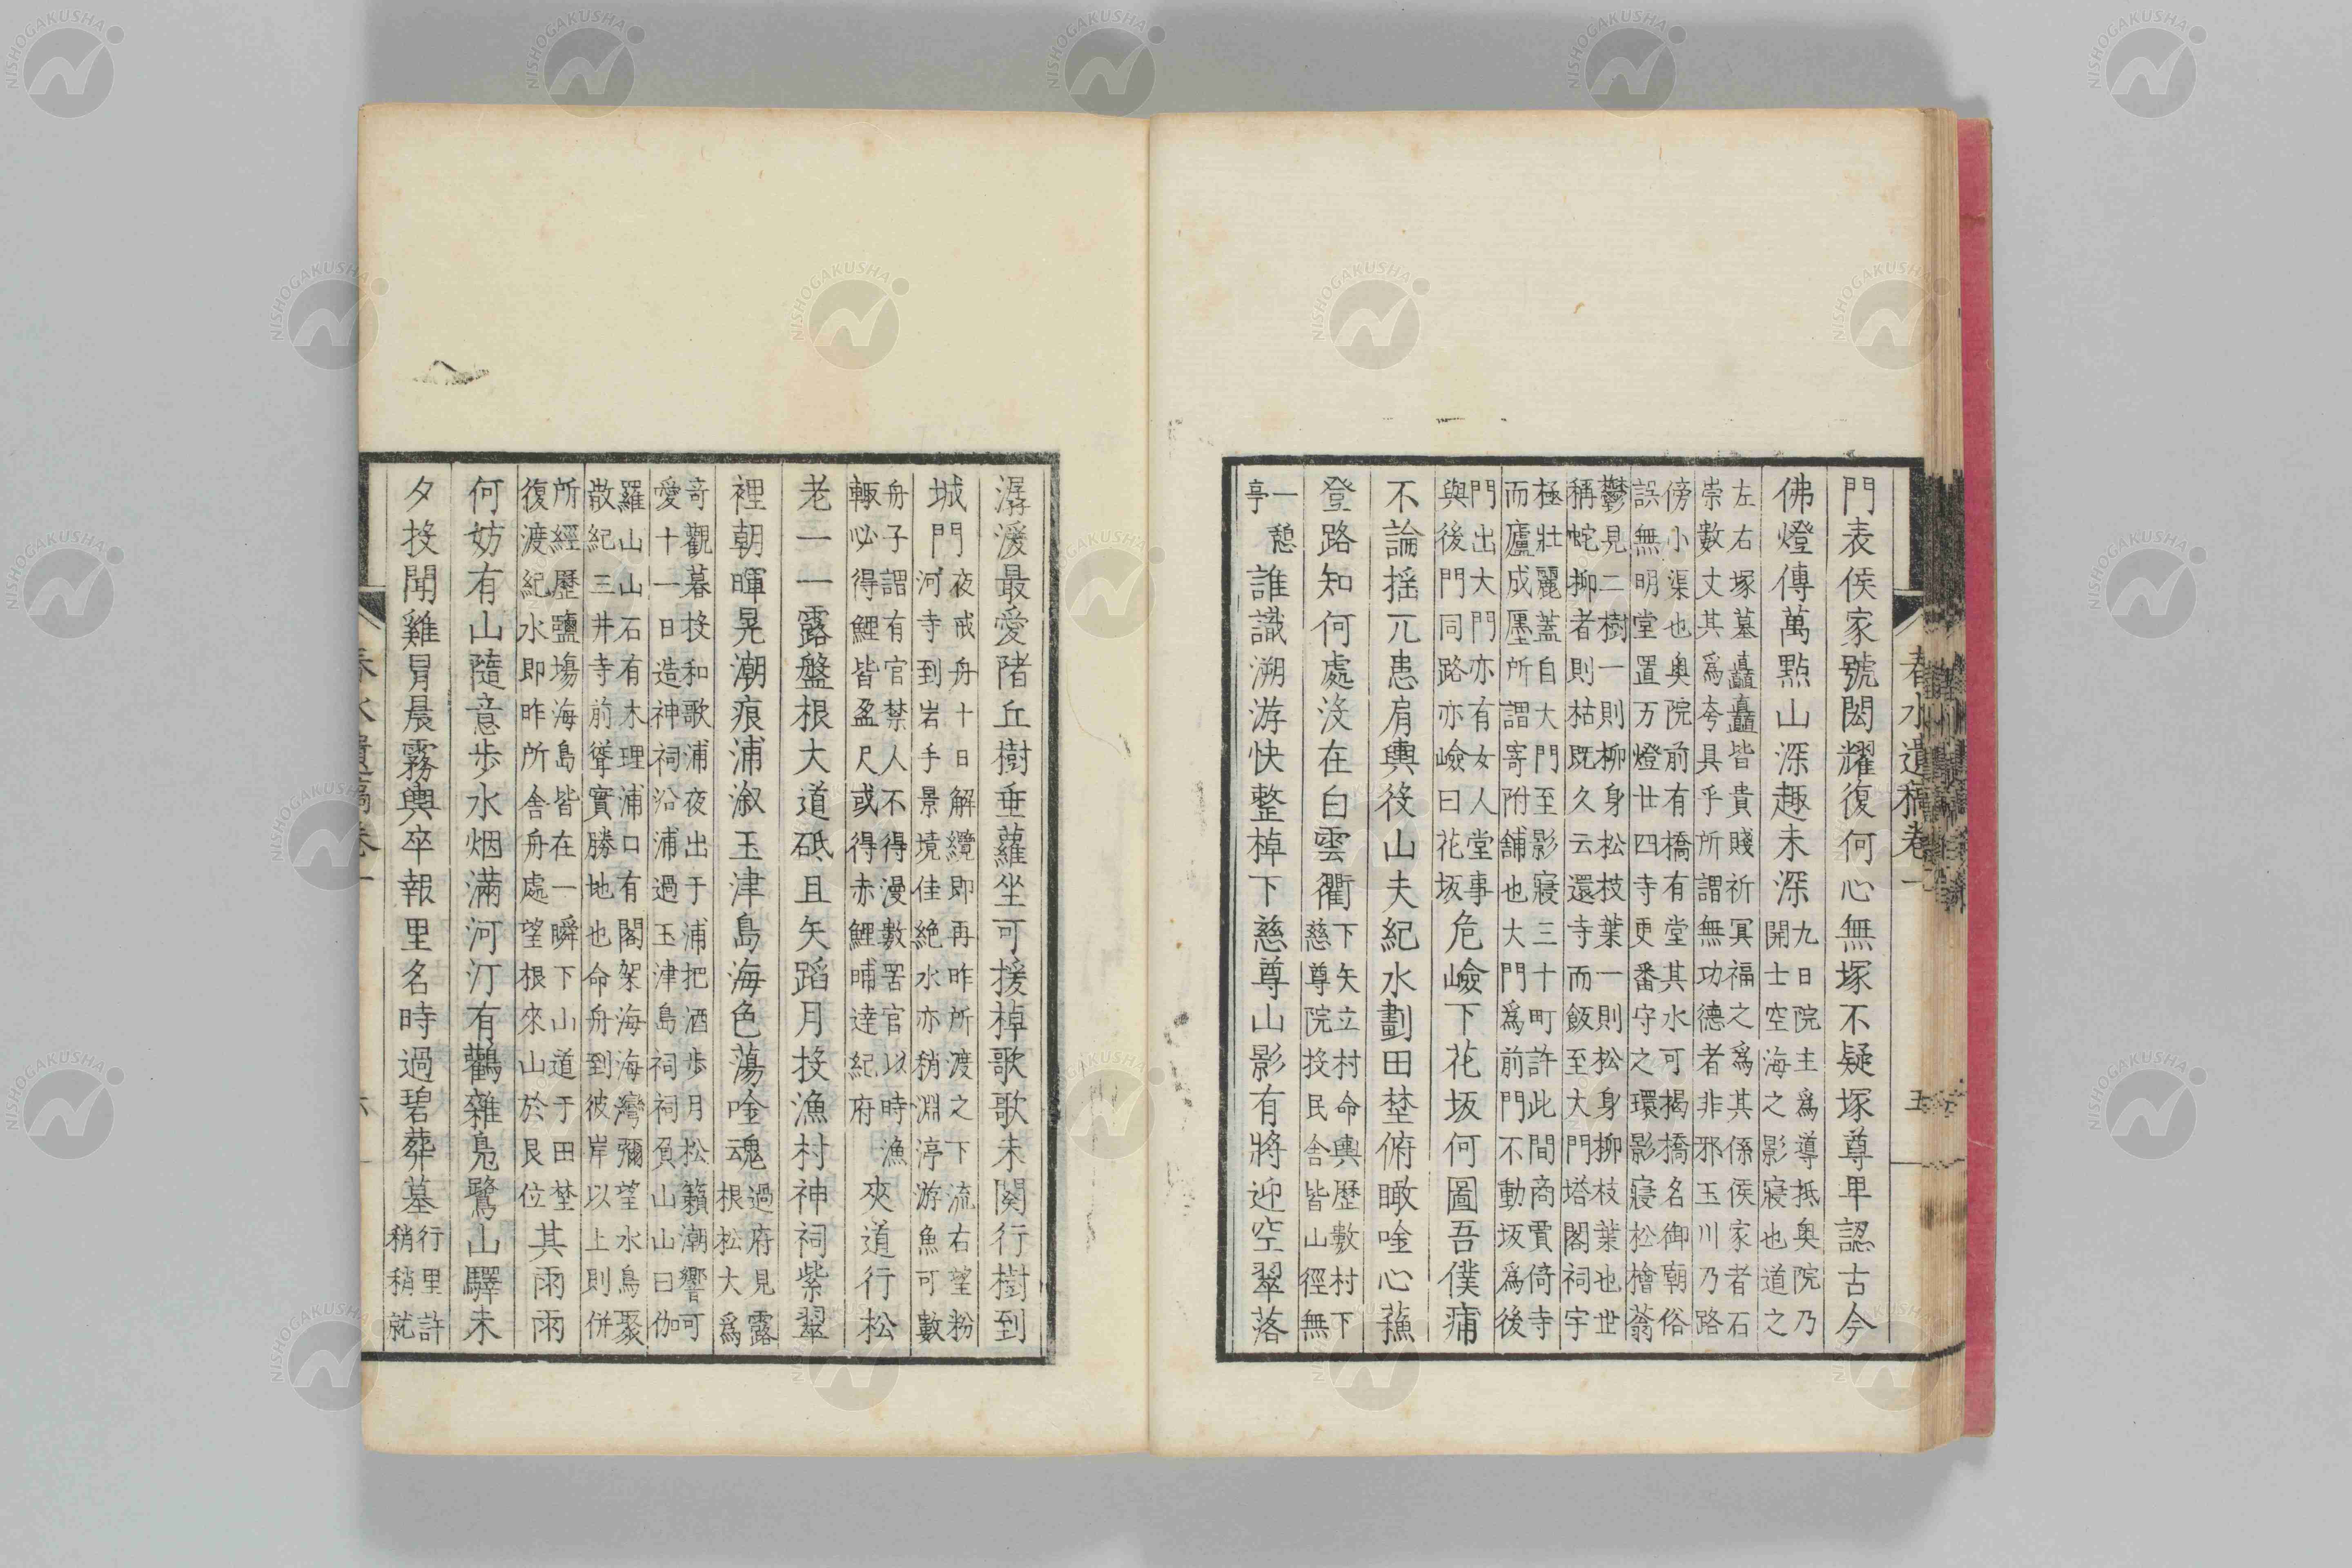 春水遺稿卷一 五
門表侯家號閎耀復何心無塚不疑塚尊卑認古今
佛燈傳萬點山深趣未深
九日院主爲導抵奥院乃
開士空海之影寢也道之
左右塚墓矗矗皆貴賤祈冥福之爲其係侯家者石
崇數丈其爲夸具乎所謂無功德者非邪玉川乃路
傍小渠也奥院前有橋有堂其水可揭橋名御廟俗
誤無明堂置万燈廿四寺更番守之環影寢松檜蓊
鬱見二樹一則柳身松枝葉一則松身柳枝葉也世
稱蛇柳者則枯既久云還寺而飯至大門塔閣祠宇
極壯麗蓋自大門至影寢三十町許此間商賈倚寺
而廬成廛所謂寄附舖也大門爲前門不動坂爲後
門出大門亦有女人堂事
與後門同路亦嶮曰花坂
危嶮下花坂何圖吾僕痡
不論揺兀患肩輿役山夫紀水劃田埜俯瞰唫心蘓
登路知何處没在白雲衢
下矢立村命輿歴數村下
慈尊院投民舎皆山徑無
一憩
亭
誰識溯游快整棹下慈尊山影有將迎空翠落
潺湲最愛陼丘樹垂蘿坐可援棹歌歌未関行樹到
城門
夜戒舟十日解纜即再昨所渡之下流右望粉
河寺到岩手景境佳絶水亦稍淵渟游魚可數
舟子謂有官禁人不得漫數罟官以時漁
輙必得鯉皆盈尺或得赤鯉晡達紀府
夾道行松
老一一露盤根大道砥且矢蹈月投漁村神祠紫翠
裡朝暉晃潮痕浦溆玉津島海色蕩唫魂
過府見露
根松大爲
奇觀暮投和歌浦夜出于浦把酒歩月松籟潮響可
愛十一日造神祠沿浦過玉津島祠祠負山山曰伽
羅山山石有木理浦口有閣架海海灣彌望水鳥聚
散紀三井寺前聳實勝地也命舟到彼岸以上則併
所經歷鹽塲海島皆在一瞬下山道于田埜
復渡紀水即昨所舎舟處望根來山於艮位
其雨雨
何妨有山隨意歩水烟滿河汀有鸛雜鳧鷺山驛未
夕投聞雞冐晨霧輿卒報里名時過碧葬墓
行里許
稍稍就